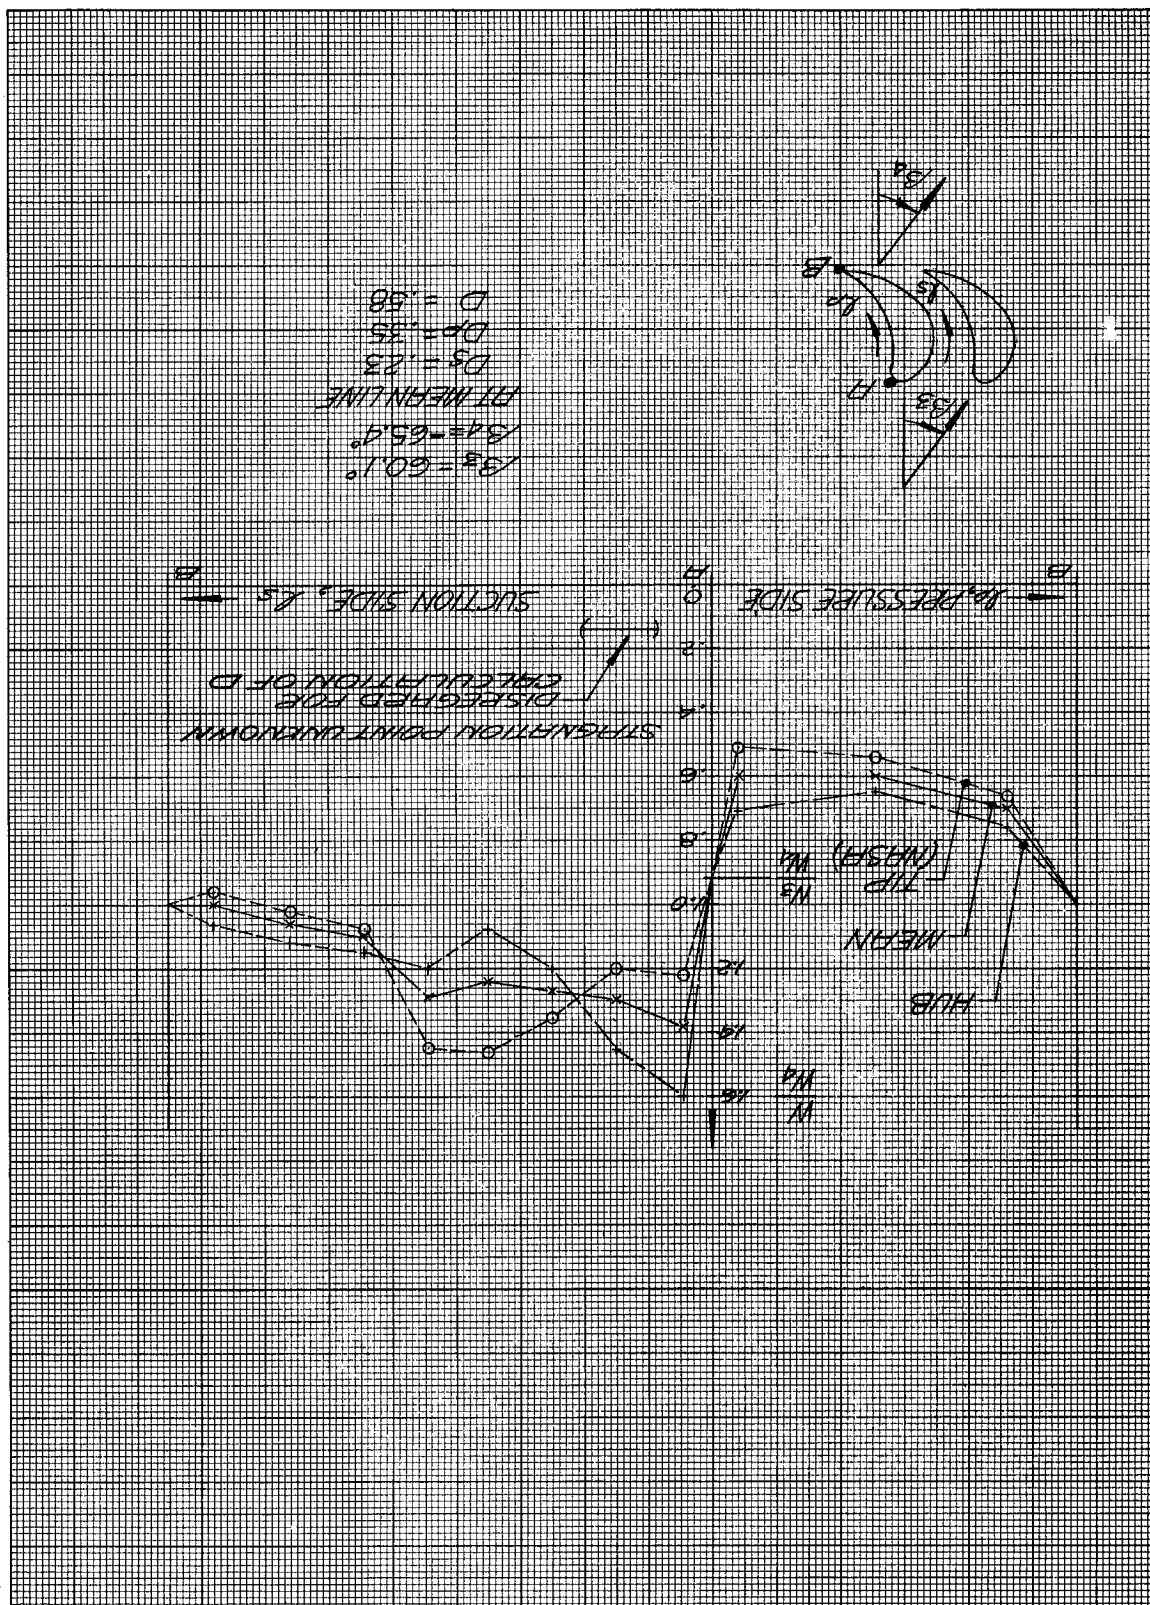 W
W4
1.6
1.4
HUB
1.2
MEAN
1.0
W3
W4
TIP
(NASA)
.8
.6
.4
STAGNATION POINT UNKNOWN
DISREGARD FOR
CALCULATION OF D
.2
0
lp, PRESSURE SIDE
SUCTION SIDE, ls
B
A
B
β3 = 60.1°
β4 = -65.4°
AT MEAN LINE
DS = .23
Dp = .35
D = .58
β3
A
lp
ls
B
β4